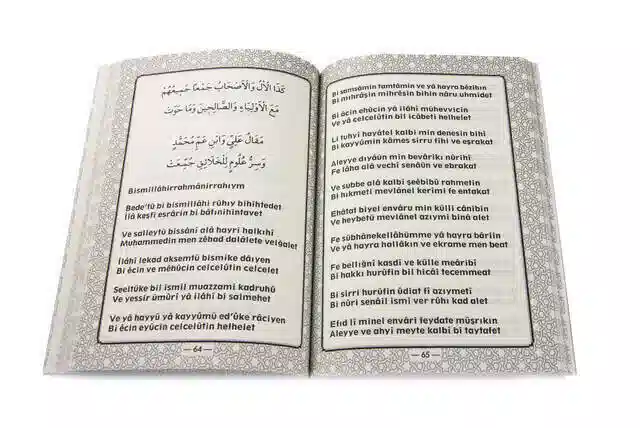 كَذَا الْاٰلُ وَالْاَصْحَابُ جَمْعًا جَمِيعُهُمْ
مَعَ الْاَوْلِيَاءِ وَالصَّالِحِينَ وَمَا حَوَتْ
مَقَالُ عَلِيٍّ وَابْنِ عَمِّ مُحَمَّدٍ
وَسِرُّ عُلُومٍ لِلْخَلَائِقِ جُمِّعَتْ
Bismillâhirrahmânirrahıym
Bede'tü bi bismillâhi rûhıy bihihtedet
İlâ keşfi esrârin bi bâtınihintavet
Ve salleytu bissâni alâ hayri halkıhî
Muhammedin men zêhad dalâlete velğalet
İlâhî lekad aksemtü bismike dâıyen
Bi êcin ve mêhûcin celcelûtin celcelet
Seeltüke bil ismil muazzami kadruhû
Ve yessir ümûrî yâ ilâhî bi salmehet
Ve yâ hayyü yâ kayyûmü ed'ûke râciyen
Bi êcin eyûcin celcelûtin helhelet
— 64 —
Bi samsâmin tamtâmin ve yâ hayra bêzihın
Bi mihrâşin mihrêsin bihin nâru uhmidet
Bi êcin ehûcin yâ ilâhî mühevvicin
Ve yâ celcelûtin bil icâbeti helhelet
Li tuhyî hayâtel kalbi min denesin bihî
Bi kayyûmin kâmes sirru fîhi ve eşrakat
Aleyye dıyâün min bevârikı nûrihî
Fe lâha alâ vechî senâün ve ebrakat
Ve subbe alâ kalbî şeêbîbü rahmetin
Bi hıkmeti mevlânel kerîmi fe entakat
Ehâtat biyel envâru min külli cânibin
Ve heybetü mevlânel azıymi binâ alet
Fe sübhânekellâhümme yâ hayra bâriin
Ve yâ hayra hallâkın ve ekrame men beat
Fe belliğnî kasdî ve külle meâribî
Bi hakkı hurûfin bil hicâi tecemmeat
Bi sirri hurûfin ûdiat fî azıymetî
Bi nûri senâil ismi ver rûhı kad alet
Efıd lî minel envâri feydate müşrıkın
Aleyye ve ahyi meyte kalbî bi taytafet
— 65 —